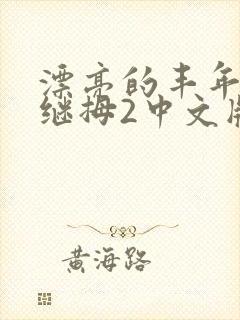 漂亮的丰年
继拇2中文版
黄海路